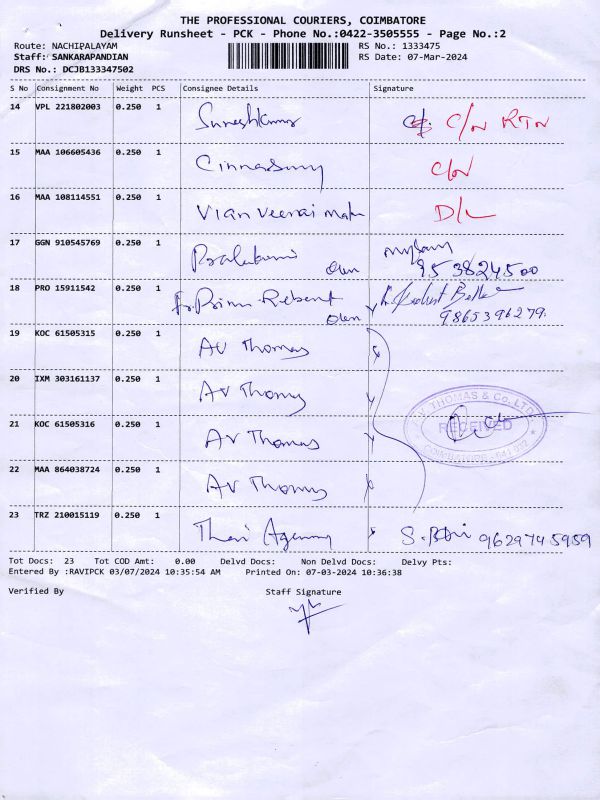 THE PROFESSIONAL COURIERS, COIMBATORE
Delivery Runsheet - PCK - Phone No.:0422-3505555 - Page No.:2
Route: NACHIPALAYAM RS No.: 1333475
Staff: SANKARAPANDIAN RS Date: 07-Mar-2024
DRS No.: DCJB133347502
S No Consignment No Weight PCS Consignee Details Signature
14 VPL 221802003 0.250 1 Sureshkumar C/N RTN
15 MAA 106605436 0.250 1 Cinnasamy C/N
16 MAA 108114551 0.250 1 Vian Veerai D/L
17 GGN 910545769 0.250 1
9538824500
18 PRO 15911542 0.250 1
9865396279
19 KOC 61505315 0.250 1 AV Thomas
20 IXM 303161137 0.250 1 AV Thomas
21 KOC 61505316 0.250 1 AV Thomas
A.V. THOMAS & Co. LTD.
RECEIVED
22 MAA 864038724 0.250 1 AV Thomas
23 TRZ 210015119 0.250 1 Agency 9629745959
Tot Docs: 23 Tot COD Amt: 0.00 Delvd Docs: Non Delvd Docs: Delvy Pts:
Entered By :RAVIPCK 03/07/2024 10:35:54 AM Printed On: 07-03-2024 10:36:38
Verified By Staff Signature